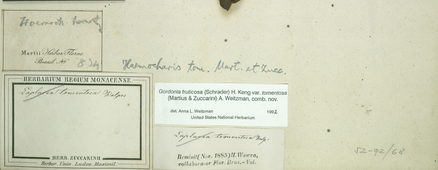 Martii Herbar. Florae
Brasil. N.
Haemocharis tom. Mart. et Zucc.
HERBARIUM REGIUM MONACENSE.
Laplacea tomentosa Walpers
HERB. ZUCCARINII
Herbar. Univ. Ludov. Maximil.
Gordonia fruticosa (Schrader) H. Keng var. tomentosa
(Martius & Zuccarini) A. Weitzman, comb. nov.
det. Anna L. Weitzman 1992
United States National Herbarium
Laplacea tomentosa Walp.
Revisit (Nov. 1885) H. Wawra,
collaborator Flor. Bras.